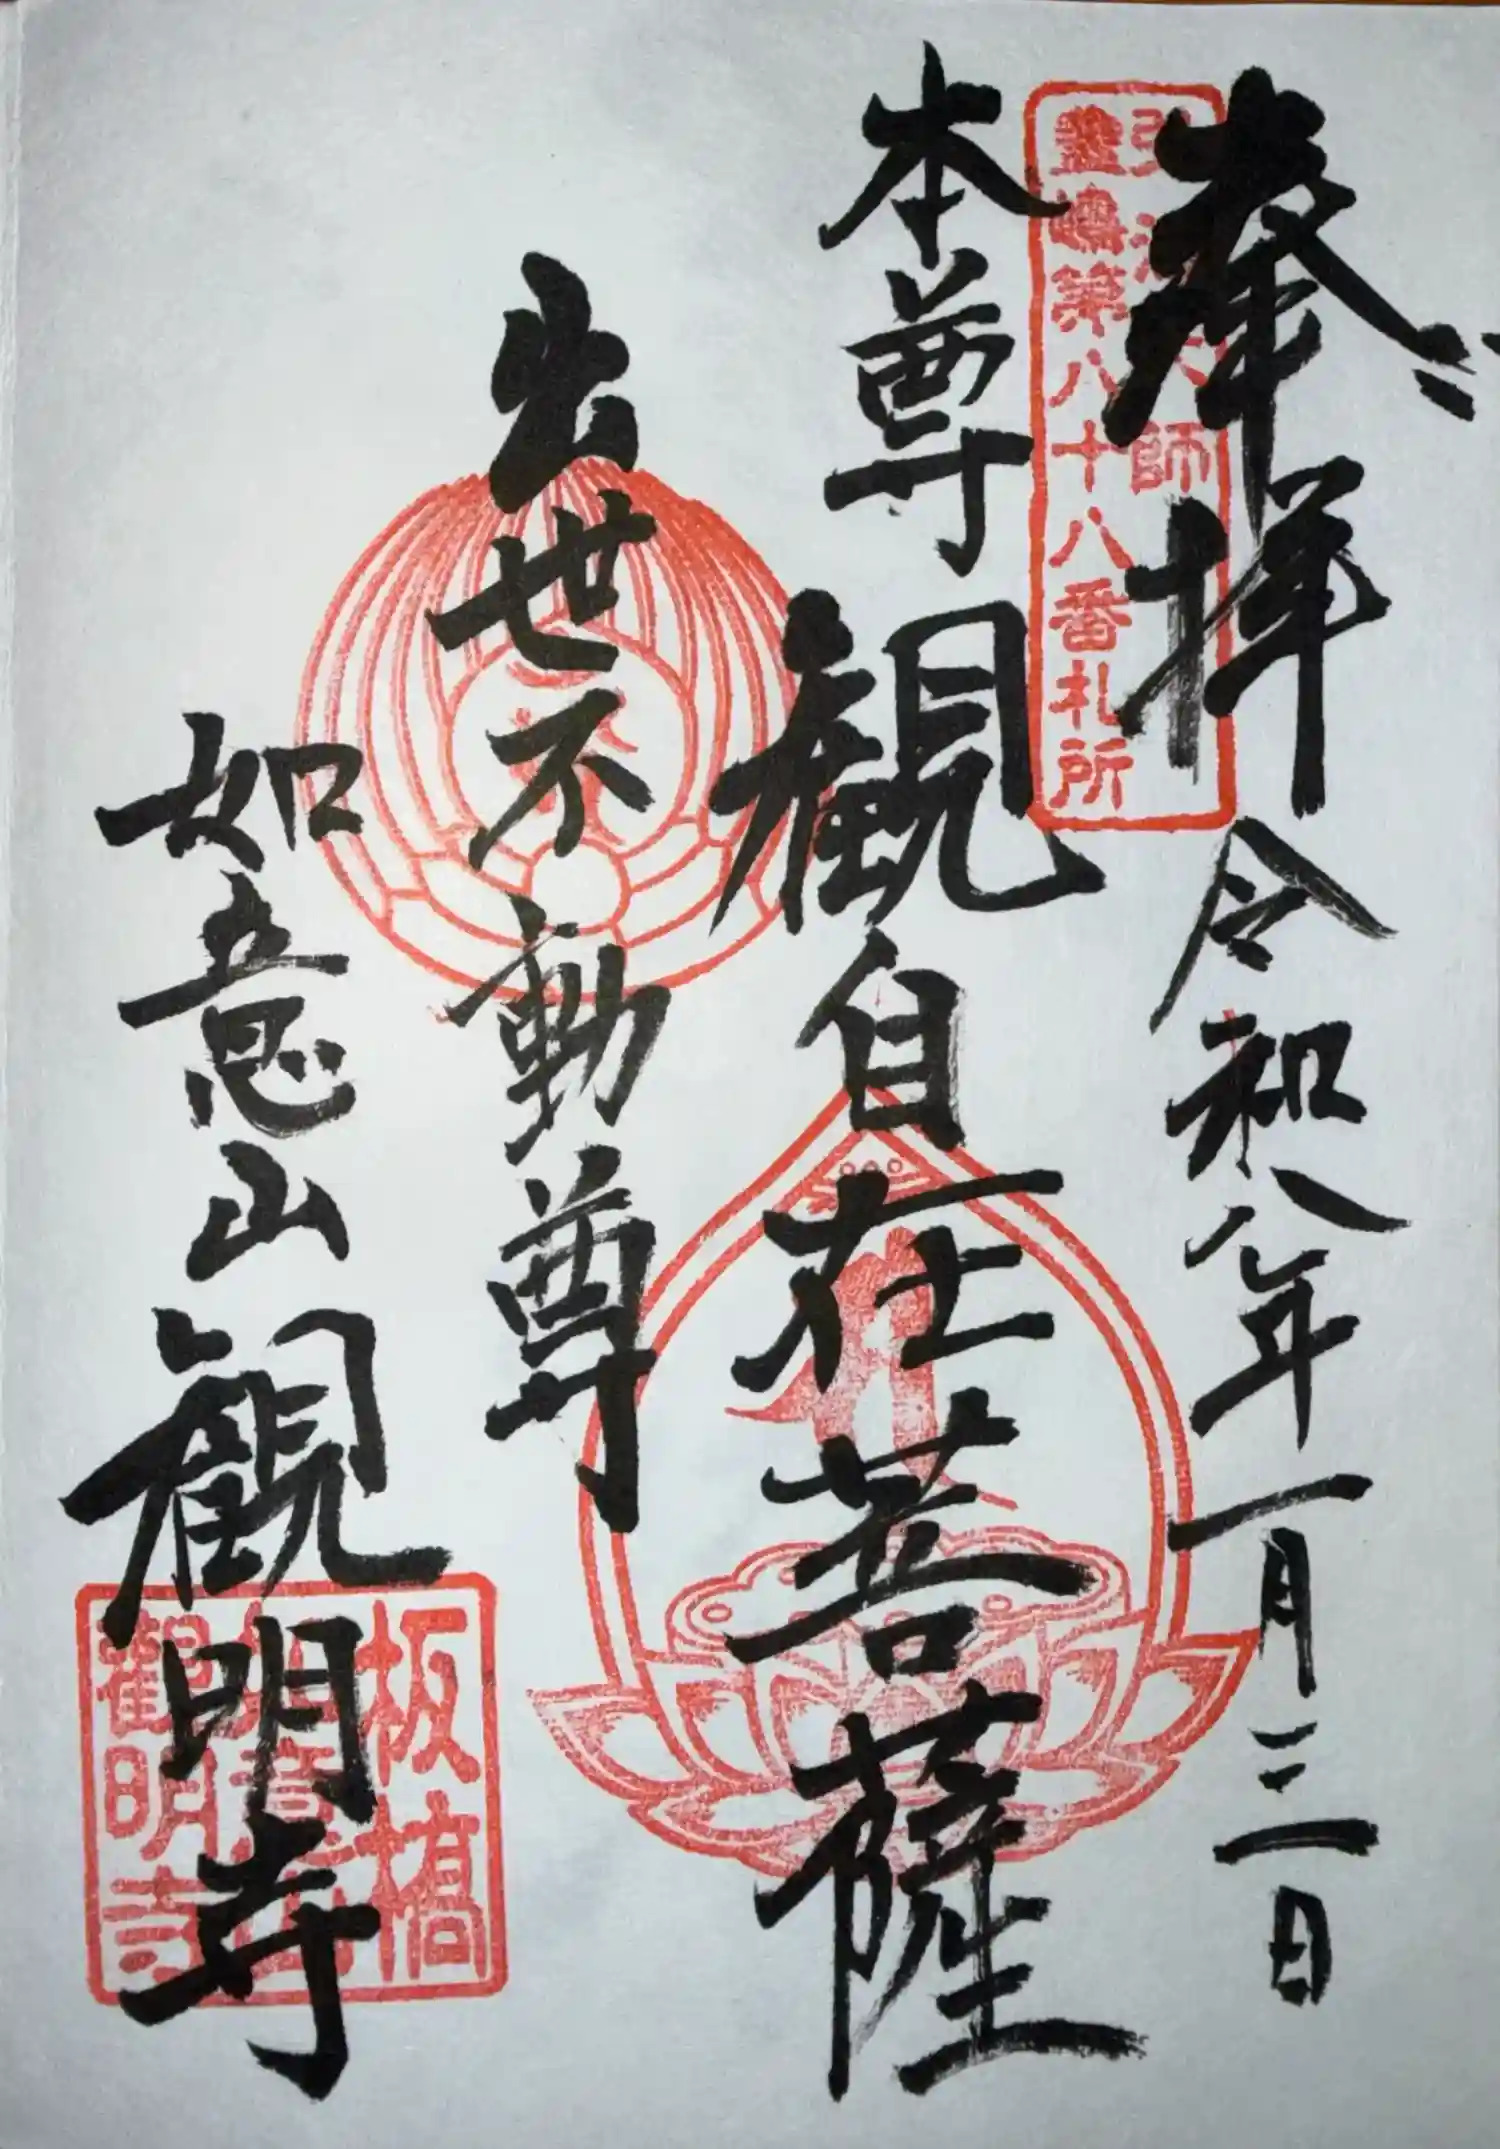 奉拝
令和八年一月三日
弘法大師
豊嶋第八十八番札所
本尊
観自在菩薩
出世不動尊
如意山
観明寺
板橋
如意山
観明寺